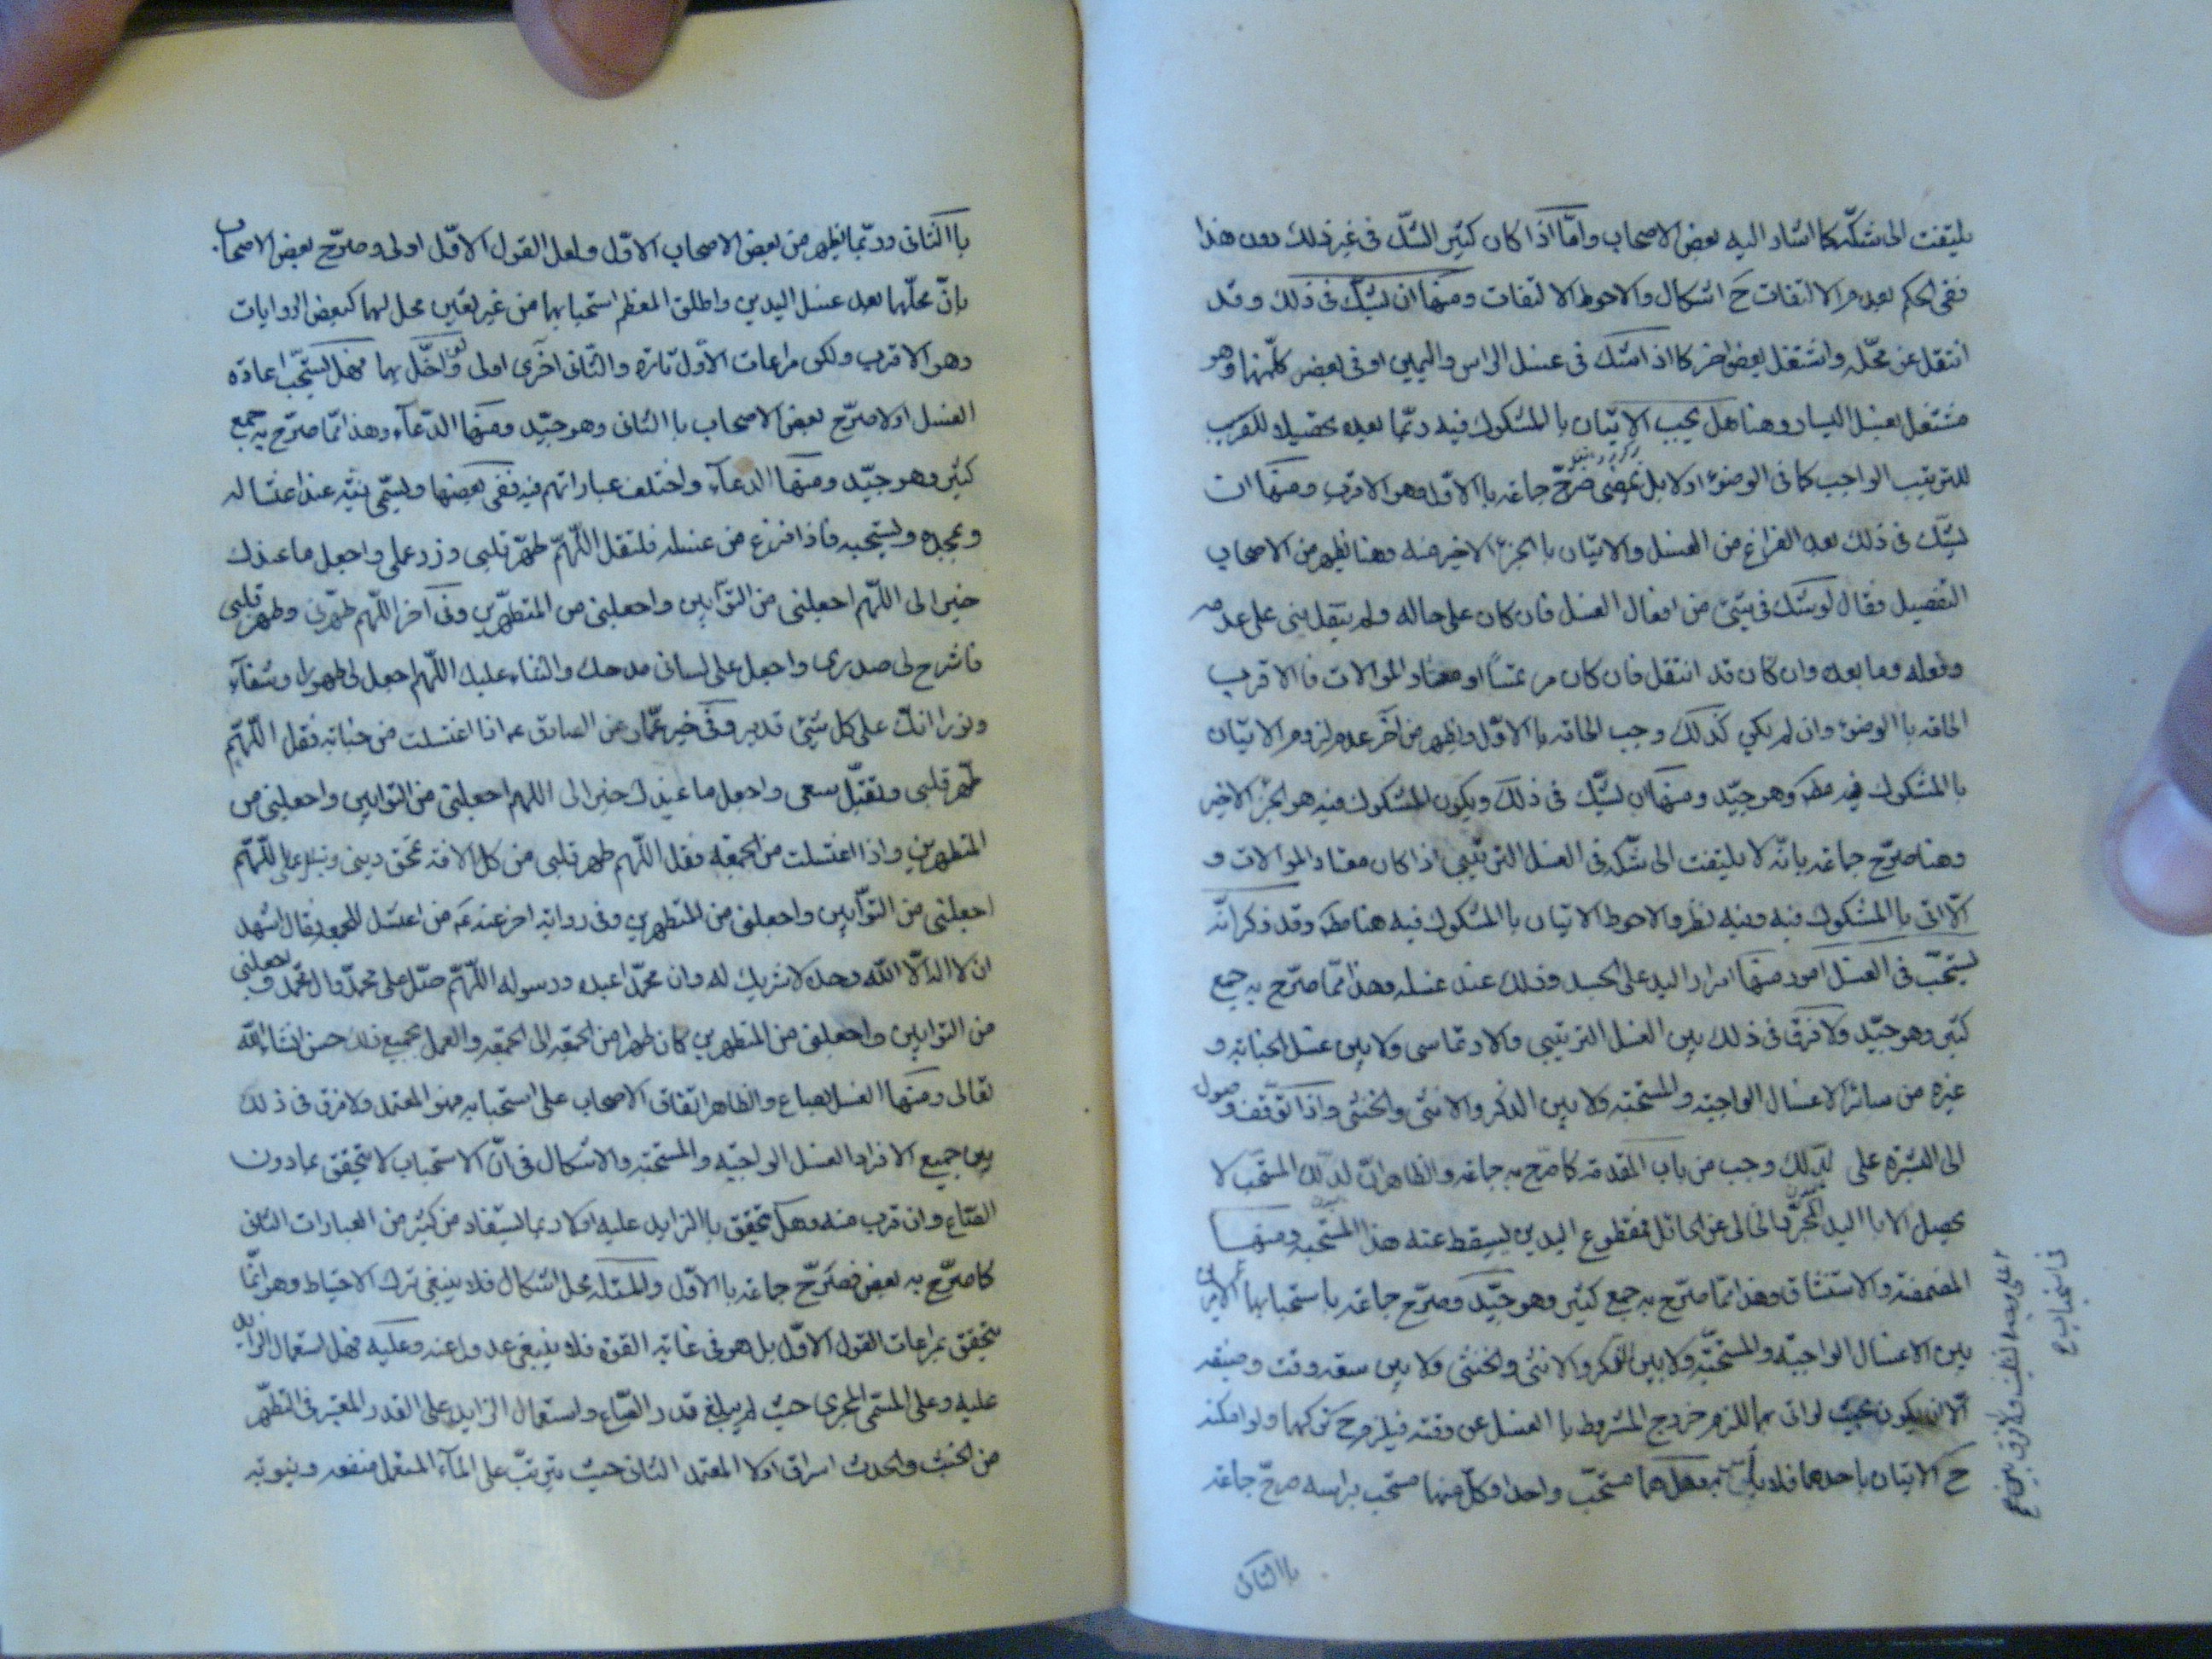 يلتفت الى شكّه كما اشار اليه بعض الاصحاب وامّا اذا كان كثير الشك فى غير ذلك دون هذا
ففى الحكم بعدم الالتفات ح اشكال والاحوط الالتفات ومنها ان يشك فى ذلك وقد
انتقل عن محلّه واشتغل بعض اخر كما اذا شك فى غسل الراس واليمين او فى بعض كلّ منهما وهو
مشتغل بغسل اليسار وهنا هل يجب الاتيان باالمشكوك فيه وبما بعده تحصيلا للقرب
للترتيب الواجب كما فى الوضوء اولا بل يمضى صرّح جماعة باالاوّل وهو الاقرب ومنها ان
يشك فى ذلك بعد الفراغ من الغسل والاتيان باالجزء الاخير منه وهنا يظهر من الاصحاب
التفصيل فقال لو شك فى شئ من افعال الغسل فان كان على حاله ولم ينتقل بنى على عدمه
وفعله وما بعده وان كان قد انتقل فان كان مرتمسًا او معتاد الموالات فاالاقرب
الحاقه باالوضوء وان لم يكن كذلك وجب الحاقه باالاوّل ويظهر من اخر عدم لزوم الاتيان
باالمشكوك فيه مط وهو جيّد ومنها ان يشك فى ذلك ويكون المشكوك فيه هو الجزء الاخير
وهنا صرّح جماعة بانّه لا يلتفت الى شكه فى الغسل الترتيبى اذا كان معتاد الموالات و
الّا اتى باالمشكوك فيه وفيه نظر والاحوط الاتيان باالمشكوك فيه هنا مط وقد ذكر انّه
يستحبّ فى الغسل امور منها امرار اليد على الجسد وذلك عند غسله وهذا ممّا صرّح به جمع
كثير وهو جيّد ولا فرق فى ذلك بين الغسل الترتيبى والارتماسى ولا بين غسل الجنابة و
غيره من سائر الاغسال الواجبة والمستحبّة ولا بين الذكر والانثى والخنثى واذا توقّف وصول
الى البشرة على الدلك وجب من باب المقدمة كما صرّح به جماعة والظاهر انّ الدلك المستحب لا
يحصل الا باالید المجرّدة الخالى عن الحائل فمقطوع اليدين يسقط عنه هذا المستحب ومنها
المضمضة والاستنشاق وهذا ممّا صرّح به جمع كثير وهو جيّد وصرّح جماعة باستحبابهما
بين الاغسال الواجبة والمستحبّة ولا بين الذكر والانثى والخنثى ولا بين سعة وقت وضيقه
الّا ان يكون بحيث لو اتى بهما للزم خروج المشروط باالغسل عن وقته فيلزم ح تركهما ولو امكنه
ح الاتيان باحدهما فلا باس به وهل هما مستحبّ واحد او كلّ منهما مستحب براسه صرّح جماعة
باالثانى
باالثانى وربّما يظهر من بعض الاصحاب الاوّل ولعل القول الاوّل اولى وصرّح بعض الاصحاب
بانّ محلّهما بعد غسل اليدين واطلق المعظم استحبابهما من غير تعيين محل لهما كبعض الروايات
وهو الاقرب ولكن مراعات الاوّل تارة والثانى اخرى اولى ولو اخّل بهما فهل يستحب اعادة
الغسل اولا صرّح بعض الاصحاب باالثانى وهو جيّد ومنها الدعاء وهذا ممّا صرّح به جمع
كثير وهو جيّد ومنها الدعاء واختلف عباراتهم فيه ففى بعضها ويسمّى بنيّة عند اغتساله
ويمجده ويسبّحه فاذا فرغ من غسله فليقل اللّهمّ طهّر قلبى وزد عملى واجعل ما عندك
خيرا لى اللّهمّ اجعلنى من التوّابين واجعلنى من المتطهّرين وفى اخر اللّهم طهّرنى وطهر قلبى
فاشرح لى صدرى واجعل على لسانى مدحك والثناء عليك اللّهم اجعل لى طهورا وشفآء
ونورا انك على كل شئ قدير وفى خبر عمّار عن الصادق عه اذا اغتسلت من جنابة فقل اللّهمّ
طهر قلبى وتقبّل سعى واجعل ما عندك خيرا لى اللهم اجعلنى من التوابين واجعلنى من
المتطهرين واذا اغتسلت من الجمعة فقل اللّهم طهر قلبى من كل افة تمحق دينى وتبطل عملى اللّهمّ
اجعلنى من التوّابين واجعلنى من المتطهرين وفى رواية اخر عنه عم من اغتسل للجمعة فقال اشهد
ان لا اله الّا اللّه وحده لا شريك له وان محمّدا عبده ورسوله اللّهمّ صلّ على محمّد وال محمّد واجعلنى
من التوابين واجعلنى من المتطهرين كان طهرا من الجمعة الى الجمعة والعمل بجميع ذلك حسن انشاء اللّه
تعالى ومنها الغسل بصاع والظاهر اتفاق الاصحاب على استحبابه فهو المعتمد ولا فرق فى ذلك
بين جميع الافراد الغسل الواجبة والمستحبّة والاشكال فى انّ الاستحباب لا يتحقق بما دون
الصّاع وان قرب منه وهل يتحقق باالزايد عليه اولا ربما يستفاد من كثير من العبارات الثانى
كما صرّح به بعض فصرّيح جماعة باالاوّل والمسئلة محل اشكال فلا ينبغى ترك الاحتياط وهو انّما
يتحقق بمراعات القول الاوّل بل هو فى غاية القوة فلا ينبغى عدول عنه وعليه فهل استعمال الزايد
عليه وعلى المسمّى المجزى حيث لم يبلغ قدر الصّاع واستعمال الزايد على القدر المعتبر فى التطهّر
من الخبث والحدث اسراف اولا المعتمد الثانى حيث يترتّب على المآء المستعمل منفعة دنيوية